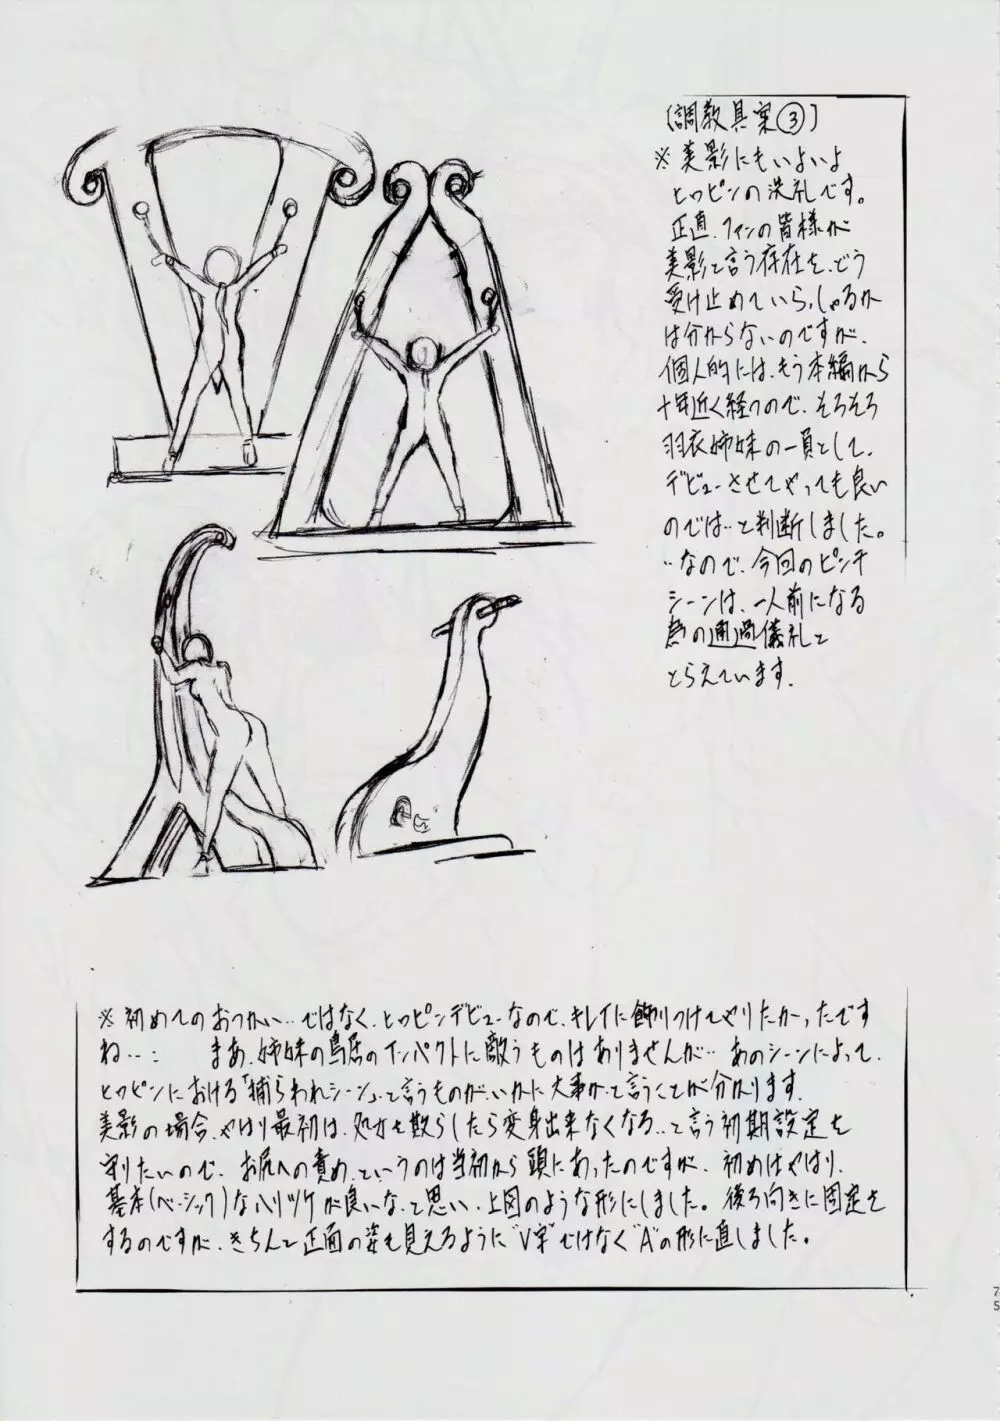 [調教具案③]
※美影にもいよいよ
ヒロピンの洗礼です。
正直、ファンの皆様が
美影と言う存在を、どう
受け止めていらっしゃるか
は分からないのですが、
個人的には、もう本編から
十年近く経つので、そろそろ
羽衣姉妹の一員として、
デビューさせてやっても良い
のでは‥と判断しました。
‥なので、今回のピンチ
シーンは、一人前になる
為の通過儀礼と
とらえています.
※初めてのおつかい…ではなく、ヒロピンデビューなので、キレイに飾りつけてやりたかったです
ね…: まあ、姉妹の鳥居のインパクトに敵うものはありませんが‥あのシーンによって、
ヒロピンにおける「捕らわれシーン」と言うものが、いかに大事かと言うことが分かります.
美影の場合、やはり最初は、処女を散らしたら変身出来なくなる‥と言う初期設定を
守りたいので、お尻への責め、というのは当初から頭にあったのですが、初めはやはり、
基本(ベーシック)なハリツケが良いなと思い、上図のような形にしました。後ろ向きに固定を
するのですが、きちんと正面の姿も見えるように"V字"ではなく"A"の形に直しました。
75